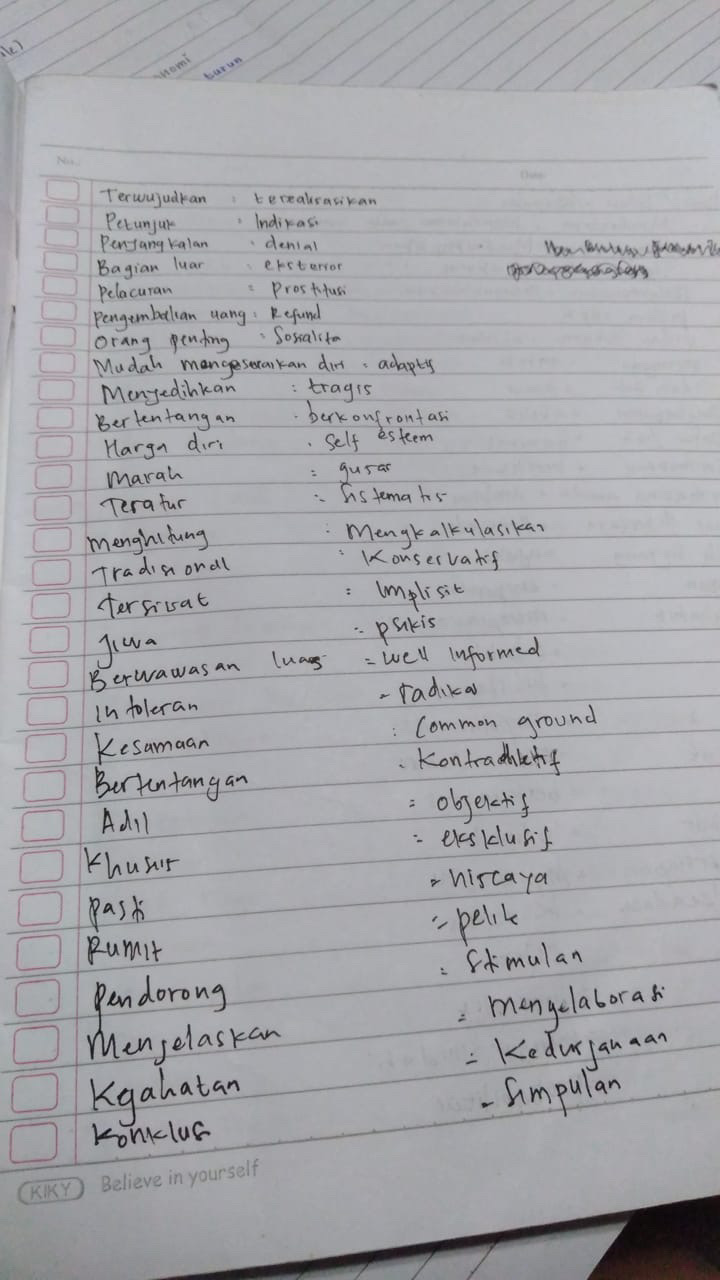 ik)
nomi
turun
No.:
Date:
Terwujudkan : terealisasikan
Petunjuk : Indikasi
Penyangkalan : denial
Bagian luar : eksterior
Pelacuran : Prostitusi
Pengembalian uang : Refund
Orang penting : Sosialita
Mudah mengesuaikan diri : adaptif
Menyedihkan : tragis
Bertentangan : berkonfrontasi
Harga diri : self esteem
Marah : gusar
Teratur : Sistematis
Menghitung : Mengkalkulasikan
Tradisional : Konservatif
Tersirat : Implisit
Jiwa : psikis
Berwawasan luas : well informed
Intoleran : radikal
Kesamaan : Common ground
Bertentangan : Kontradiktif
Adil : objektif
Khusus : eksklusif
Pasti : niscaya
Rumit : pelik
Pendorong : Stimulan
Menjelaskan : mengelaborasi
Kejahatan : Kedurjanaan
Konklusi : Simpulan
KIKY Believe in yourself